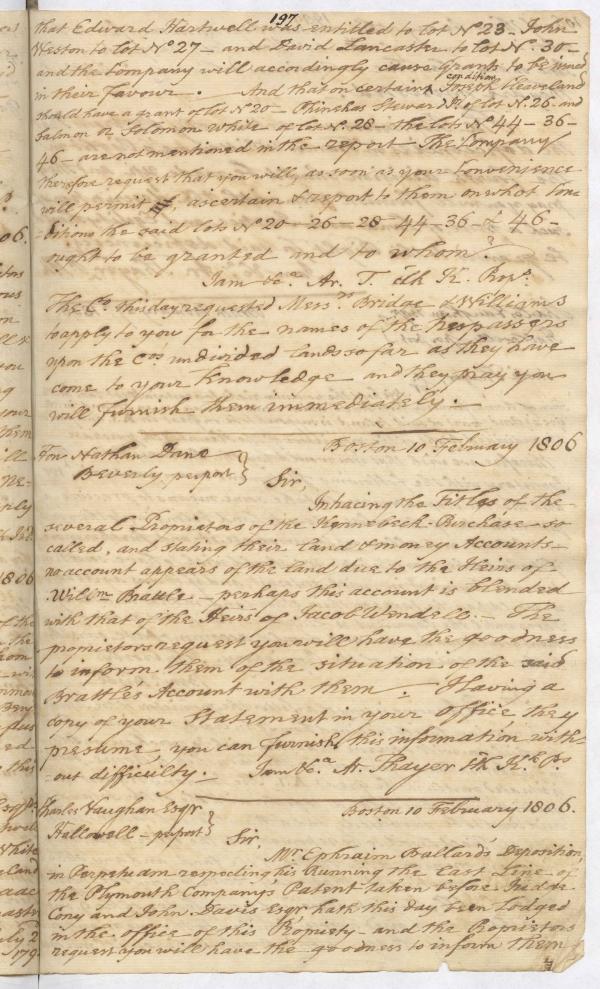 197
that Edward Hartwell was entitled to lot No 23 - John
Weston to lot No 27 - and David Lancaster to lot No. 30 -
and the Company will accordingly cause grants to be issued
in their favour. And that on certain condition Joseph Cleaveland
should have a grant of lot No 20 - Phinehas Steward Jr of lot No. 26 and
Salmon or Solomon White of lot No. 28 - the lots No 44 - 36 -
46 - are not mentioned in the report The Company
therefore request that you will, as soon as your Convenience
will permit ascertain & report to them on what Con-
-ditions the said lots No 20 - 26 - 28 - 44 - 36 - & 46 -
ought to be granted and to whom?
I am &ca. Ar. T. Clk K. Prop.
The Co. this day requested Messrs Bridge & Williams
to apply to you for the names of the trespassers
upon the Cos undivided lands so far as they have
come to your Knowledge and they pray you
will furnish them immediately.
Boston 10 February 1806
Hon Nathan Dane
Beverly per post
Sir,
In tracing the Titles of the
several Proprietors of the Kennebeck Purchase - so
called, and stating their land & money Accounts -
no account appears of the land due to the Heirs of
Willm Brattle - perhaps this account is blended
with that of the Heirs of Jacob Wendell - The
proprietors request you will have the goodness
to inform them of the situation of the said
Brattle's Account with them. Having a
copy of your Statement in your office they
presume you can furnish this information with-
-out difficulty. I am &ca. Ar. Thayer Clk Kk Ps
Boston 10 February 1806.
Charles Vaughan Esqr
Hallowell - pr post
Sir.
Mr Ephraim Ballard's Deposition,
in Perpetuam respecting his Running the East Line of
the Plymouth Companys Patent taken before Judge
Cony and John Davis Esqr hath this day been Lodged
in the office of this Propriety - and the Proprietors
request you will have the goodness to inform them